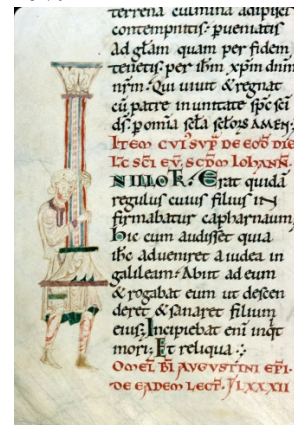 terrena culmina adipisci
contempnitis· p̄ueniatis
ad gl̄am quam per fidem
tenetis· per ih̄m xp̄m dn̄m
nr̄m· Qui uiuit & regnat
cū patre in unitate sp̄c sc̄i
ds̄· p̄ omnia sc̄la sc̄lo₂s AMEN·
ITEM CVIˢ SVP̄ DE EOD̄ DIE
L̄C SC̄I EV̄· SC̄DM̄ IOHANN̄·
N ILLO T̄R̄· Erat quidā
regulus cuius filius in
firmabatur capharnaum,
hic cum audisset quia
ih̄c adueniret a iudea in
galileam· Abiit ad eum
& rogabat eum ut descen
deret & sanaret filium
eius· Incipiebat eni inq̄t
mori· Et reliqua ·:·
OMEL̄ BI AVGVSTINI EP̄I·
DE EADEM LECT̄· LXXXII